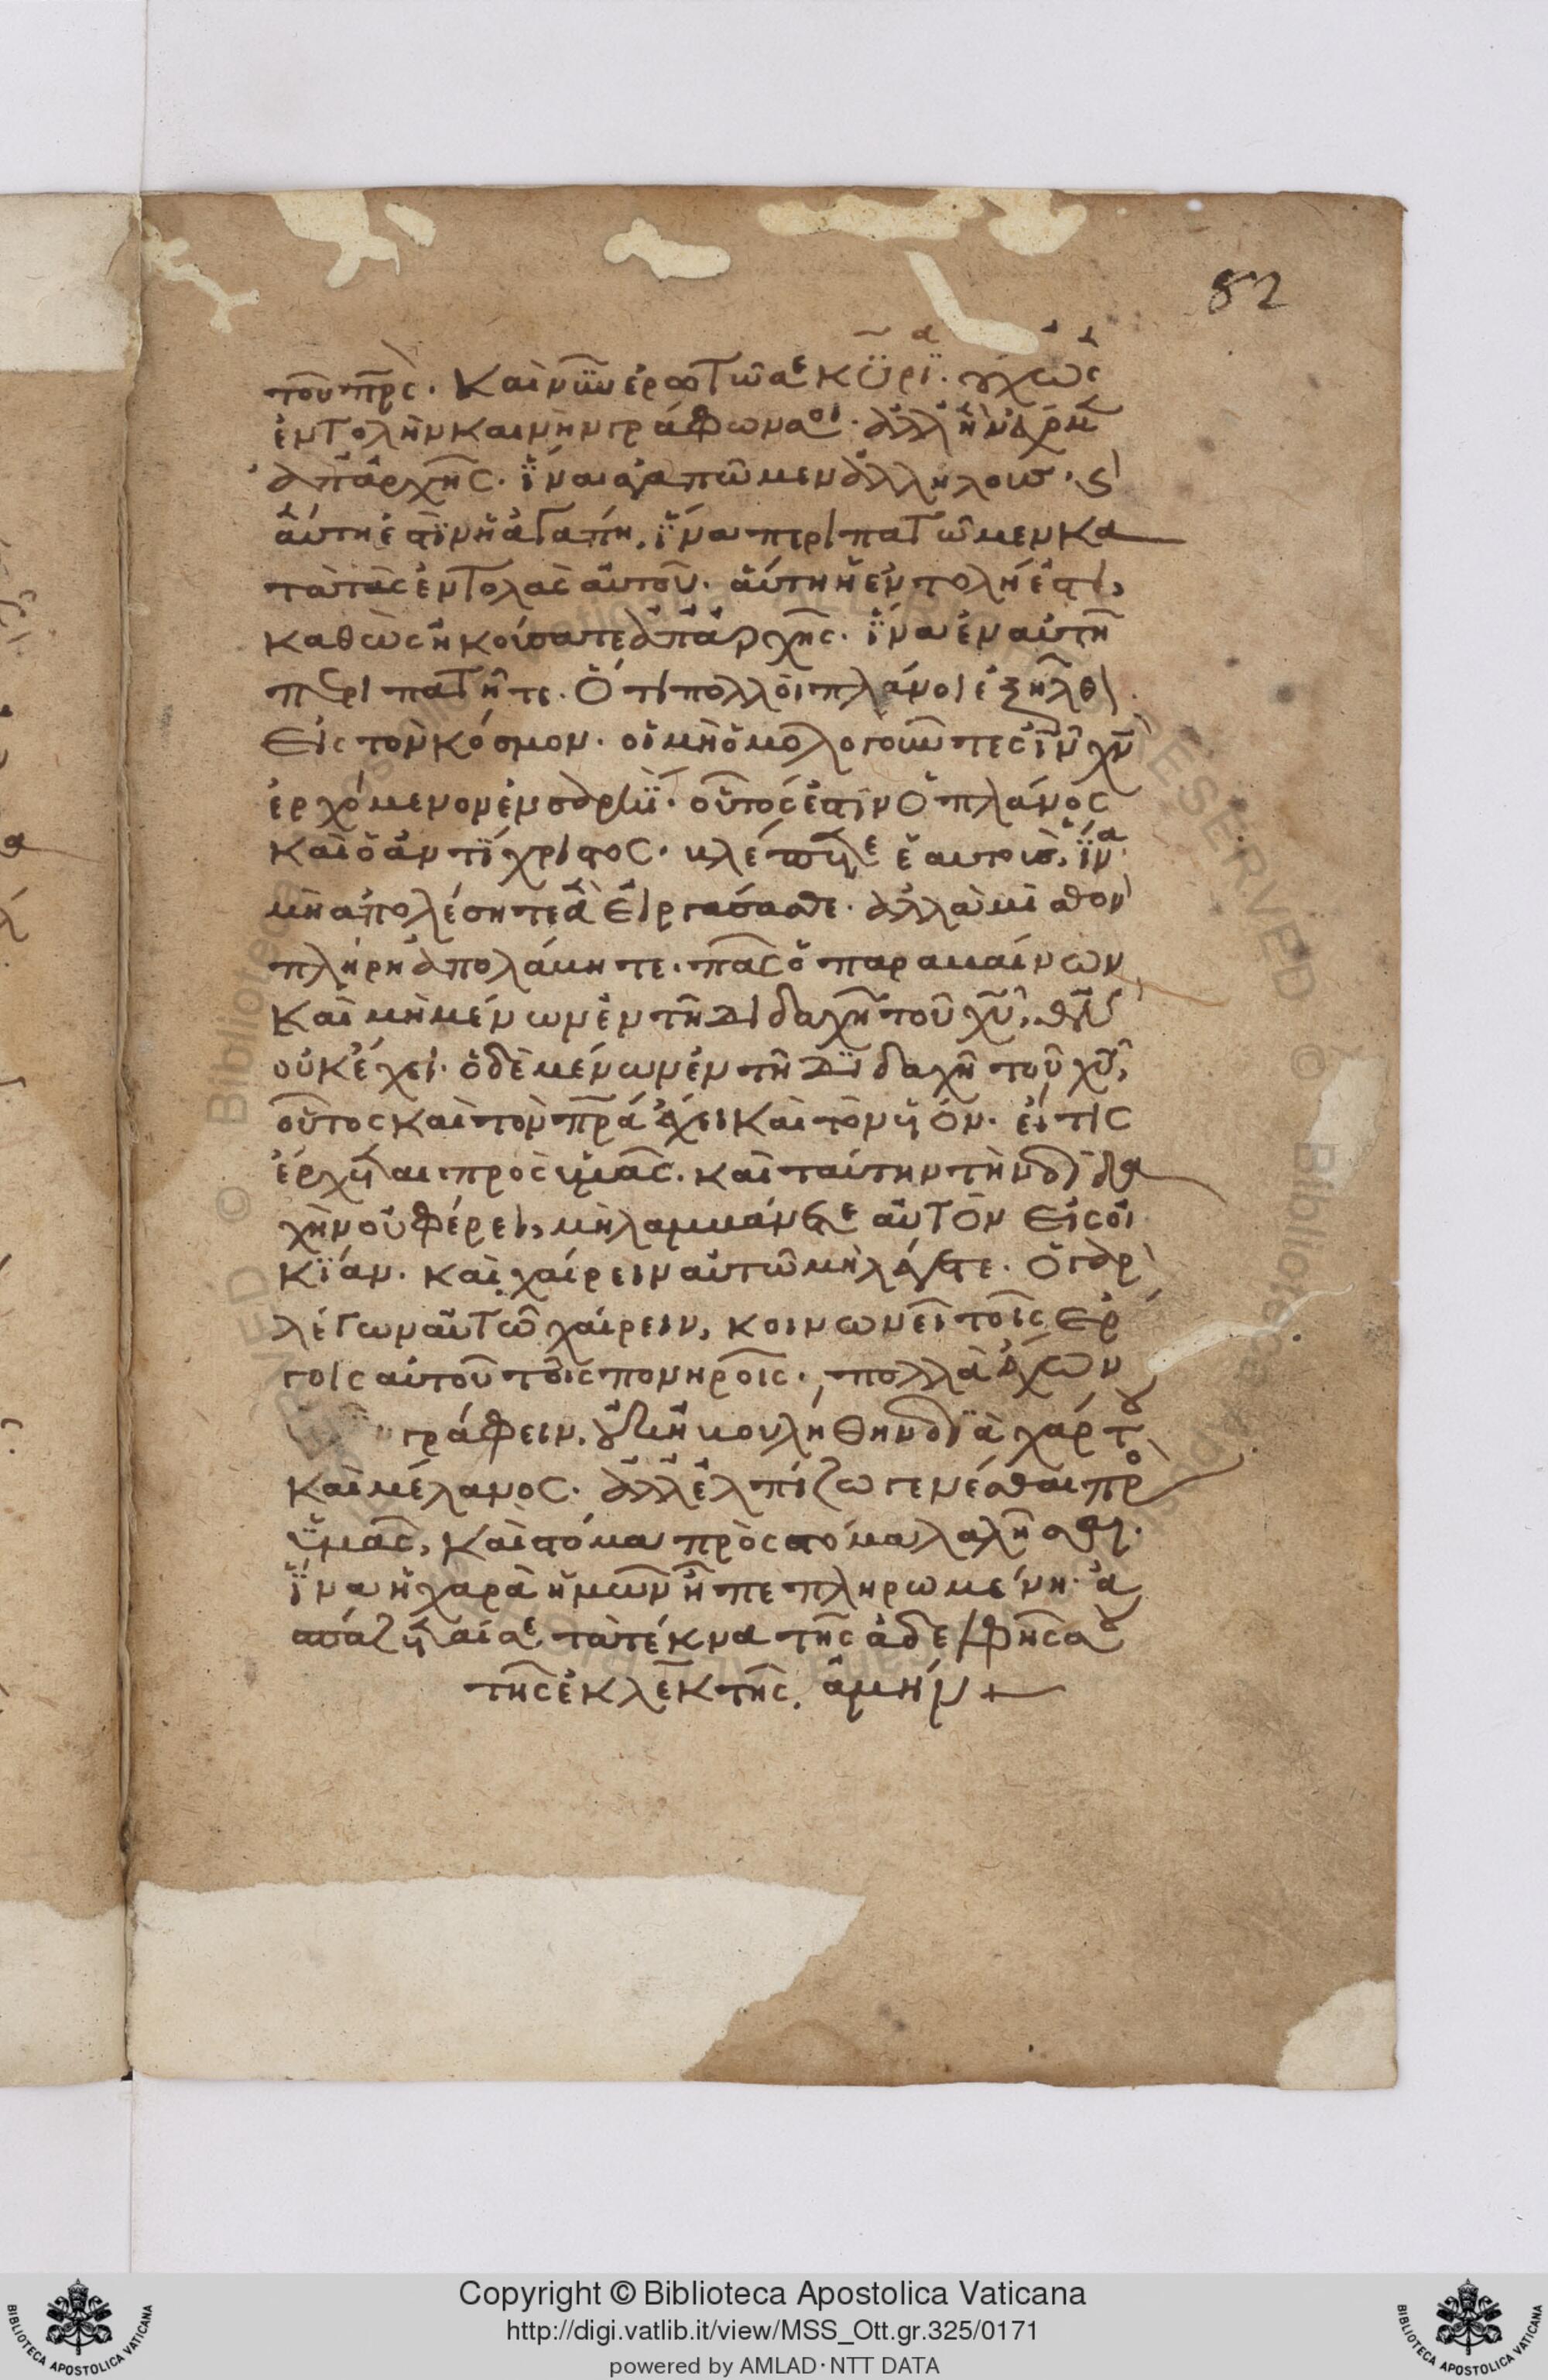 82
τοῦ πρς. Καὶ νῦν ἐρωτῶ σε κυρία. οὐχ ὡς
ἐντολὴν καινὴν γράφων σοι. ἀλλ ἣν ἔχομεν
ἀπ ἀρχῆς. ἵνα ἀγαπῶμεν ἀλλήλους. κ
αὕτη ἐστὶν ἡ ἀγάπη, ἵνα περιπατῶμεν κα
τὰ τὰς ἐντολὰς αὐτοῦ. αὕτη ἡ ἐντολή ἐστι,
καθὼς ἠκούσατε ἀπ ἀρχῆς. ἵνα ἐν αὐτῆ
περιπατῆτε. Ὅτι πολλοὶ πλάνοι ἐξῆλθ
Εἰς τὸν κόσμον. οἱ μὴ ὁμολογοῦντες ἰν χν
ἐρχόμενον ἐν σαρκί. οὗτός ἐστιν ὁ πλάνος
καὶ ὁ ἀντίχριστος. βλέπετε ἑαυτοὺς, ἵνα
μὴ ἀπολέσητε ἃ Εἰργάσασθε. ἀλλὰ μισθὸν
πλήρη ἀπολάβητε. πᾶς ὁ παραβαίνων
Καὶ μὴ μένων ἐν τῆ διδαχῆ τοῦ χυ, θν
οὐκ ἔχει. ὁ δὲ μένων ἐν τῆ διδαχῆ τοῦ χυ,
οὗτος καὶ τὸν πρα ἔχει καὶ τὸν υἱόν. εἴ τις
ἔρχεται πρὸς ὑμᾶς. καὶ ταύτην τὴν διδα
χὴν οὐ φέρει, μὴ λαμβάνετε αὐτὸν Εἰς οἰ
κίαν. καὶ χαίρειν αὐτῶ μὴ λέγετε. Ὁ γὰρ
λέγων αὐτῶ χαίρειν, κοινωνεῖ τοῖς ἔρ
γοις αὐτοῦ τοῖς πονηροῖς. πολλὰ ἔχων
γράφειν, οὐκ ἠβουλήθην διὰ χάρτου
καὶ μέλανος. ἀλλ ἐλπίζω γενέσθαι πρὸς
ὑμᾶς, καὶ στόμα πρὸς στόμα λαλῆσαι.
ἵνα ἡ χαρὰ ἡμῶν ἦ πεπληρωμένη. ἀ
σπάζεταί σε τὰ τέκνα τῆς ἀδελφῆς σου
τῆς ἐκλεκτῆς, ἀμήν +
Copyright © Biblioteca Apostolica Vaticana
http://digi.vatlib.it/view/MSS_Ott.gr.325/0171
powered by AMLAD·NTT DATA
BIBLIOTECA APOSTOLICA VATICANA
BIBLIOTECA APOSTOLICA VATICANA